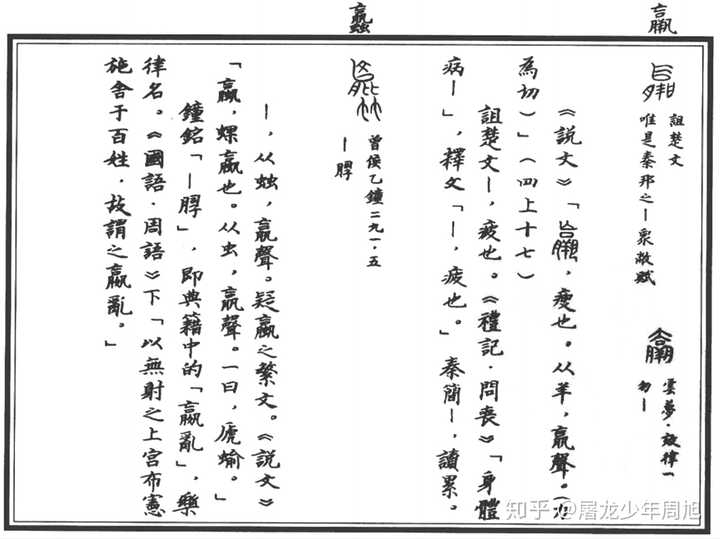 羸
詛楚文
唯是秦邦之—衆敝賦
雲夢·效律一
勿—
《說文》「羸，瘦也。从羊，𣎆聲。（力
為切）」（四上十七）
詛楚文—，疲也。《禮記·問喪》「身體
病—」，釋文「—，疲也。」秦簡—，讀累。
曾侯乙鐘二九一·五
—脟
—，从䖵，𣎆聲。疑蠃之繁文。《說文》
「蠃，螺蠃也。从虫，𣎆聲。一曰，虒蝓。」
鐘銘「—脟」，即典籍中的「嬴亂」，樂
律名。《國語·周語》下「以無射之上宮布憲
施舍于百姓，故謂之嬴亂。」
知乎 @屠龙少年周旭